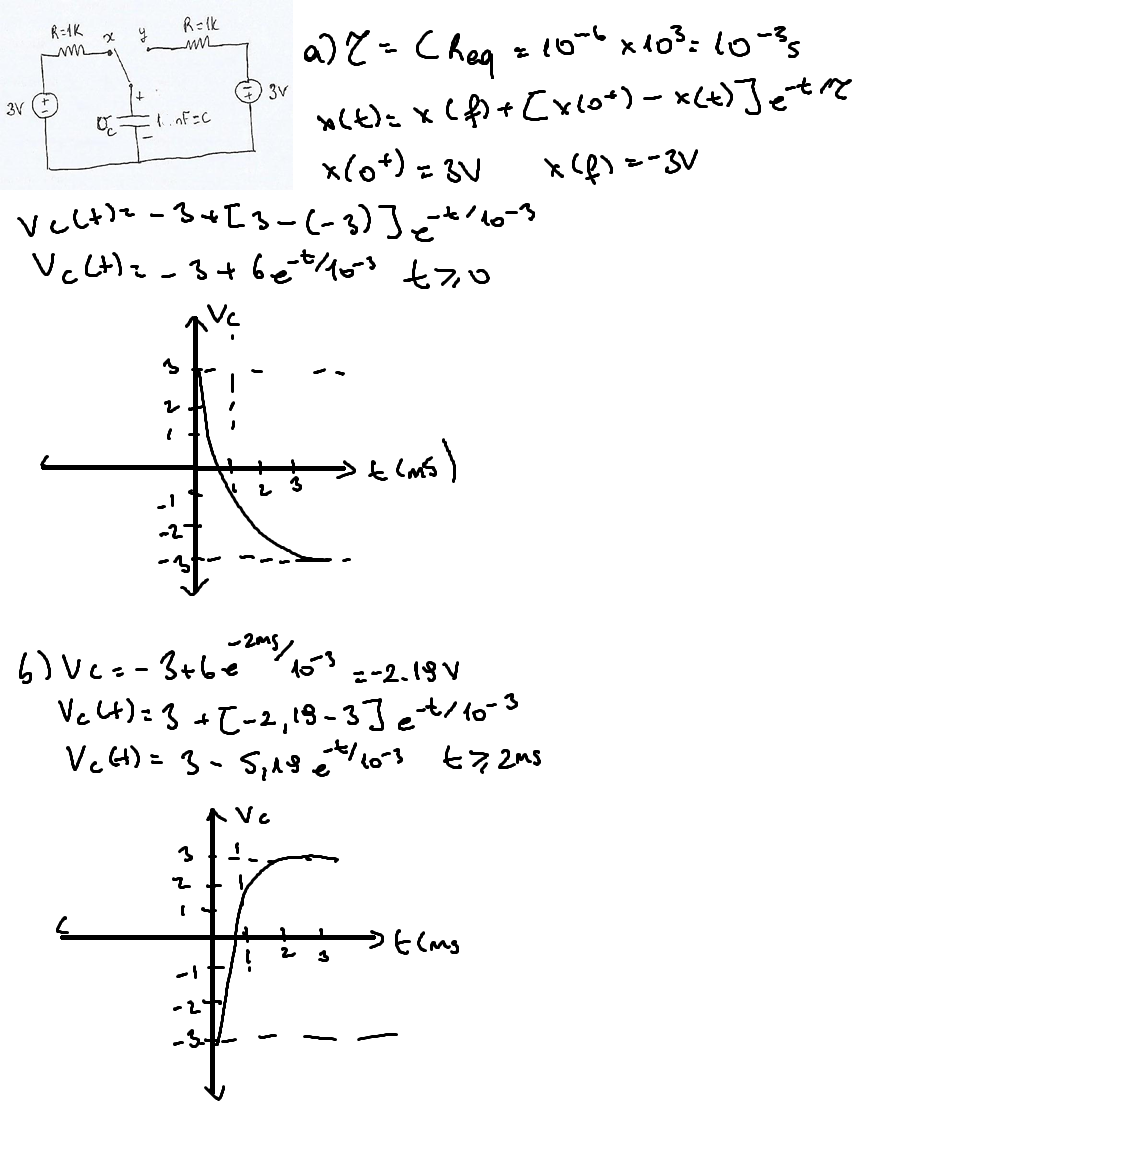 R=1K x y R=1K
3V + + 3V
Vc nF=C
-
a) τ = C Req = 10⁻⁶ x 10³ = 10⁻³s
x(t) = x(f) + [x(0⁺) - x(t)] e^-t/τ
x(0⁺) = 3V x(f) = -3V
Vc(t) = -3 + [3-(-3)] e^-t/10⁻³
Vc(t) = -3 + 6e^-t/10⁻³ t ≥ 0
Vc
3
2
1
t(ms)
1 2 3
-1
-2
-3
b) Vc = -3+6e^-2ms/10⁻³ = -2.19V
Vc(t) = 3 + [-2,19-3] e^-t/10⁻³
Vc(t) = 3 - 5,19 e^-t/10⁻³ t ≥ 2ms
Vc
3
2
1
t(ms
1 2 3
-1
-2
-3